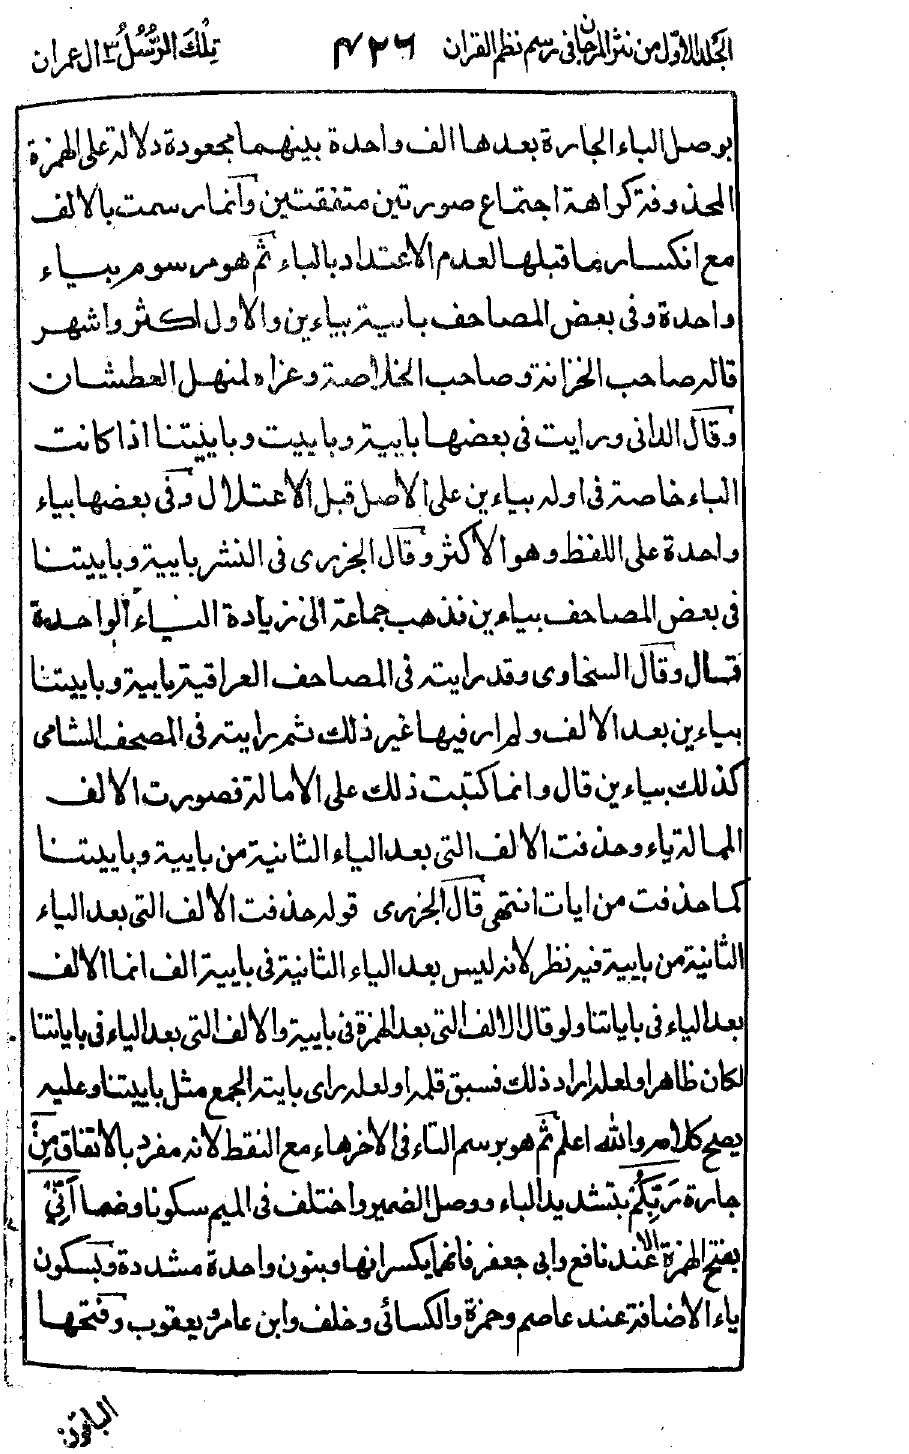 الجلد الاول من نثر المرجان فى رسم نظم القران ٤٢٦ تِلْكَ الرُّسُلُ ٣ ال عمران
بوصل الباء الجارة بعدها الف واحدة بينهما مجعودة دلالة على الهمزة
المحذوفة كراهة اجتماع صورتين متفقتين وانما رسمت بالالف
مع انكسار ما قبلها لعدم الاعتداد بالباء ثم هو مرسوم بياء
واحدة وفى بعض المصاحف بايية بياءين والاول اكثر واشهر
قاله صاحب الخزانة وصاحب الخلاصة وعزاه لمنهل العطشان
وقال الدانى ورايت فى بعضها بايية وباييت وباييتنا اذا كانت
الباء خاصة فى اوله بياءين على الاصل قبل الاعتلال وفى بعضها بياء
واحدة على اللفظ وهو الاكثر وقال الجزرى فى النشر بايية وباييتنا
فى بعض المصاحف بياءين فذهب جماعة الى زيادة الياء الواحدة
قال وقال السخاوى وقد رايته فى المصاحف العراقية بايية وباييتنا
بياءين بعد الالف ولم ار فيها غير ذلك ثم رايته فى المصحف الشامى
كذلك بياءين قال وانما كتبت ذلك على الامالة فصورت الالف
الممالة ياء وحذفت الالف التى بعد الياء الثانية من بايية وباييتنا
كما حذفت من ايات انتهى قال الجزرى قوله حذفت الالف التى بعد الياء
الثانية من بايية فيه نظر لانه ليس بعد الياء الثانية فى بايية الف انما الالف
بعد الياء فى باياتنا ولو قال الالف التى بعد الهمزة فى بايية والالف التى بعد الياء فى باياتنا
لكان ظاهرا ولعله اراد ذلك فسبق قلمه او لعله راى بايته الجمع مثل باييتنا وعليه
يصلح كلامه والله اعلم ثم هو برسم التاء فى الاخر هاء مع النقط لانه مفرد بالاتفاق مِنْ
جارة رَبِّكُمْ بتشديد الباء ووصل الضمير واختلف فى الميم سكونا وضما اَنِّىْ
بفتح الهمزة الا عند نافع وابى جعفر فانهما يكسرانها وبنون واحدة مشددة وبسكون
ياء الاضافة عند عاصم وحمزة والكسائى وخلف وابن عامر ويعقوب وفتحها
الباقون